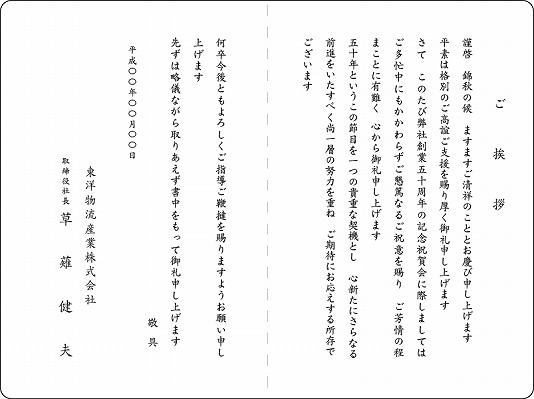 ご挨拶
謹啓　錦秋の候　ますますご清祥のこととお慶び申し上げます
平素は格別のご高誼ご支援を賜り厚く御礼申し上げます
さて　このたび弊社創業五十周年の記念祝賀会に際しましては
ご多忙中にもかかわらずご懇篤なるご祝意を賜り　ご芳情の程
まことに有難く　心から御礼申し上げます
五十年というこの節目を一つの貴重な契機とし　心新たにさらなる
前進をいたすべく尚一層の努力を重ね　ご期待にお応えする所存で
ございます
何卒今後ともよろしくご指導ご鞭撻を賜りますようお願い申し
上げます
先ずは略儀ながら取りあえず書中をもって御礼申し上げます
敬具
平成〇〇年〇〇月〇〇日
東洋物流産業株式会社
取締役社長　草薙健夫